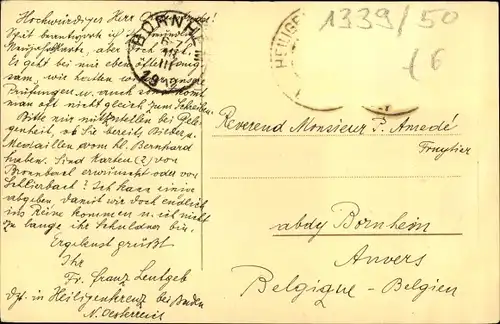 Hochwürdiges Herr
Spät beantworte ich Ihre
Neujahrskarte, aber doch
Es geht bei mir eben öfter
sam, wir hatten
Prüfungen u. auch sonst kommt
man oft nicht gleich zum Schreiben.
Bitte mir mitzuteilen bei Gele-
genheit, ob Sie bereits Bieberg.
Medaillen vom hl. Bernhard
haben. Sind Karten (2) von
Bronnbach erwünscht oder von
Schlierbach? Ich kann einige
abgeben. Damit wir doch endlich
ins Reine kommen u. ich nicht
zu lange Ihr Schuldner bin.
Ergebenst grüßt
Ihr
Fr. Franz Leutgeb
in Heiligenkreuz bei Baden
N. Oesterreich
BORNHEM
III
1912
HEILIGE
1339/50
6
Reverend Monsieur P. Amedé
abdy Bornhem
Anvers
Belgique - Belgien